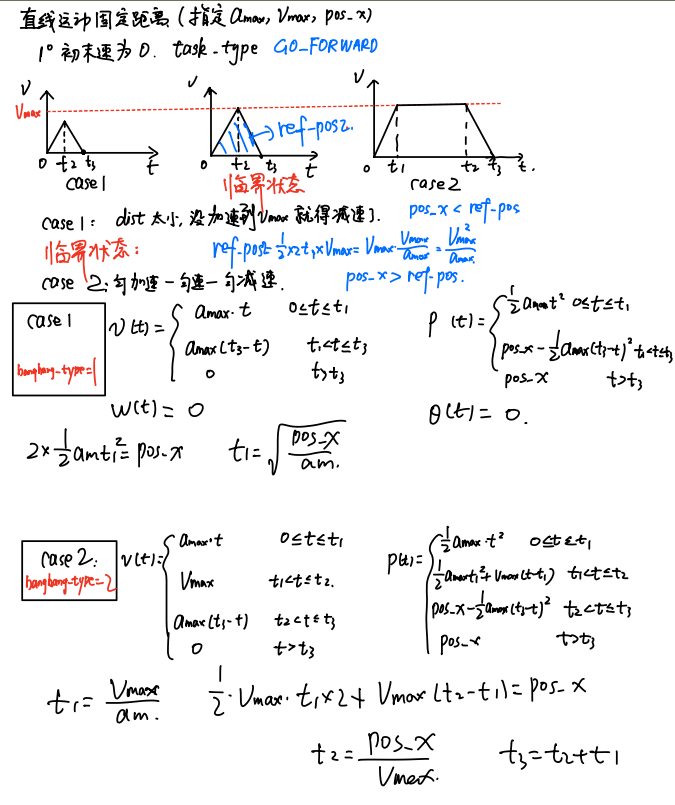 直线运动固定距离(指定 amax, Vmax, pos_x)
1° 初末速为0. task_type GO_FORWARD
V V V
Vmax
ref-pos2.
0 t2 t3 t 0 t2 t3 t 0 t1 t2 t3 t.
case1 临界状态 case2
case1: dist 太小,没加速到Vmax 就得减速了. pos_x < ref_pos
临界状态: ref-pos2=½×2t1×Vmax=Vmax·Vmax/amax=Vmax²/amax.
case 2: 匀加速-匀速-匀减速. pos_x > ref_pos.
case1
bangbang-type=1
V(t)= { amax·t 0≤t≤t1
amax(t3-t) t1<t≤t3
0 t>t3
P(t)= { ½amaxt² 0≤t≤t1
pos_x-½amax(t3-t)² t1<t≤t3
pos_x t>t3
W(t)=0 θ(t)=0.
2×½amt1²=pos_x t1=√(pos_x/am.)
case2:
bangbang-type=2
V(t)= { amax·t 0≤t≤t1
Vmax t1<t≤t2.
amax(t3-t) t2<t≤t3
0 t>t3
P(t)= { ½amax·t² 0≤t≤t1
½amaxt1²+Vmax(t-t1) t1<t≤t2
pos_x-½amax(t3-t)² t2<t≤t3
pos_x t>t3
t1=Vmax/am. ½·Vmax·t1×2+Vmax(t2-t1)=pos_x
t2=pos_x/Vmax. t3=t2+t1